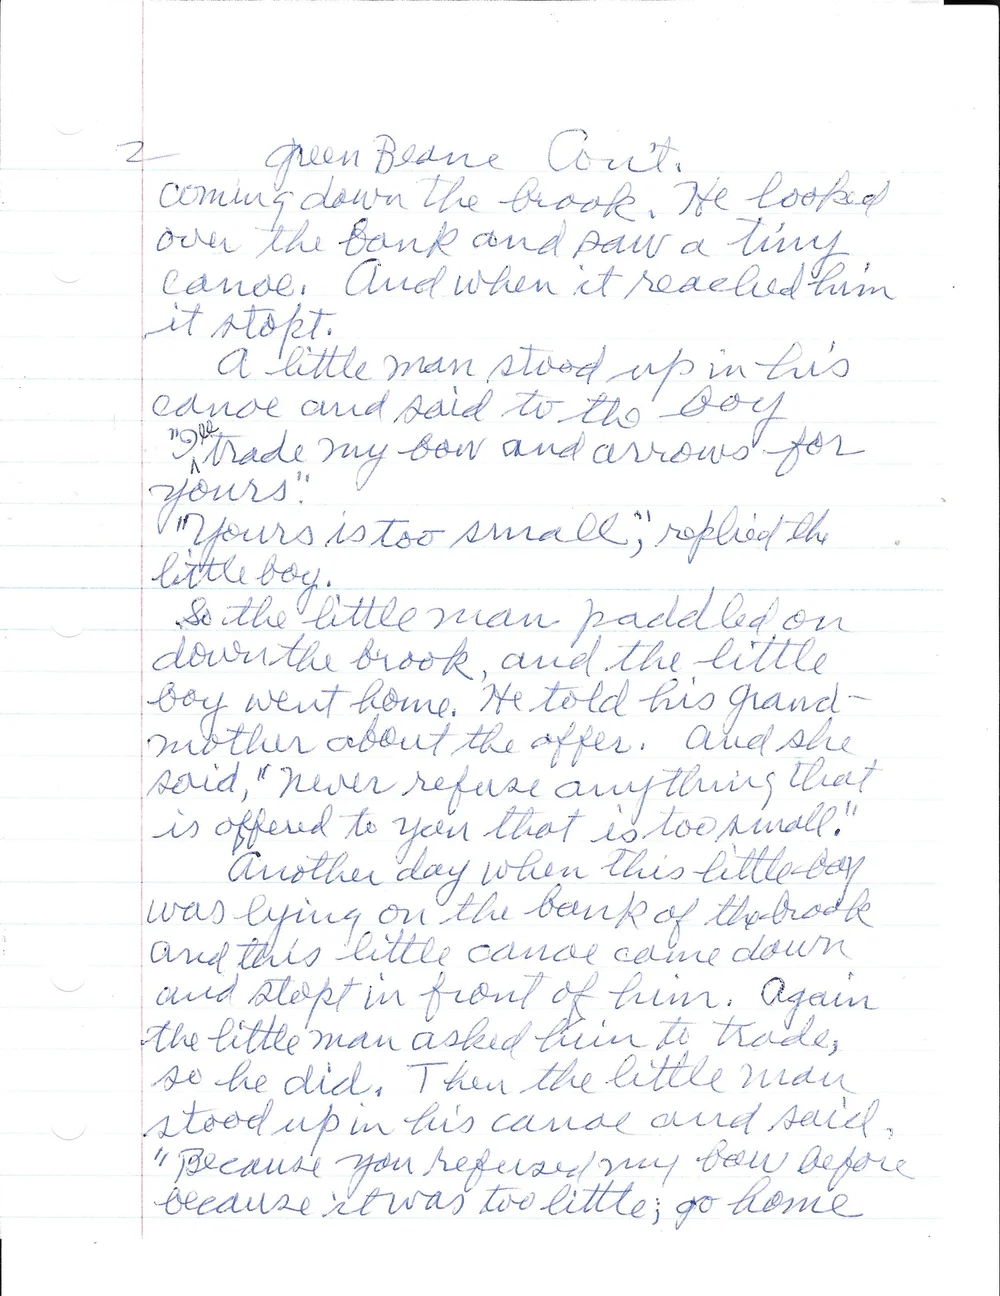 2 Green Beane Con't.
coming down the brook. He looked
over the bank and saw a tiny
canoe. And when it reached him
it stopt.
A little man stood up in his
canoe and said to the boy
"I'll trade my bow and arrows for
yours".
"Yours is too small", replied the
little boy.
So the little man paddled on
down the brook, and the little
boy went home. He told his grand-
mother about the offer. And she
said, "never refuse anything that
is offered to you that is too small."
Another day when this little boy
was lying on the bank of the brook
and this little canoe come down
and stopt in front of him. Again
the little man asked him to trade,
so he did. Then the little man
stood up in his canoe and said,
"Because you refused my bow before
because it was too little; go home